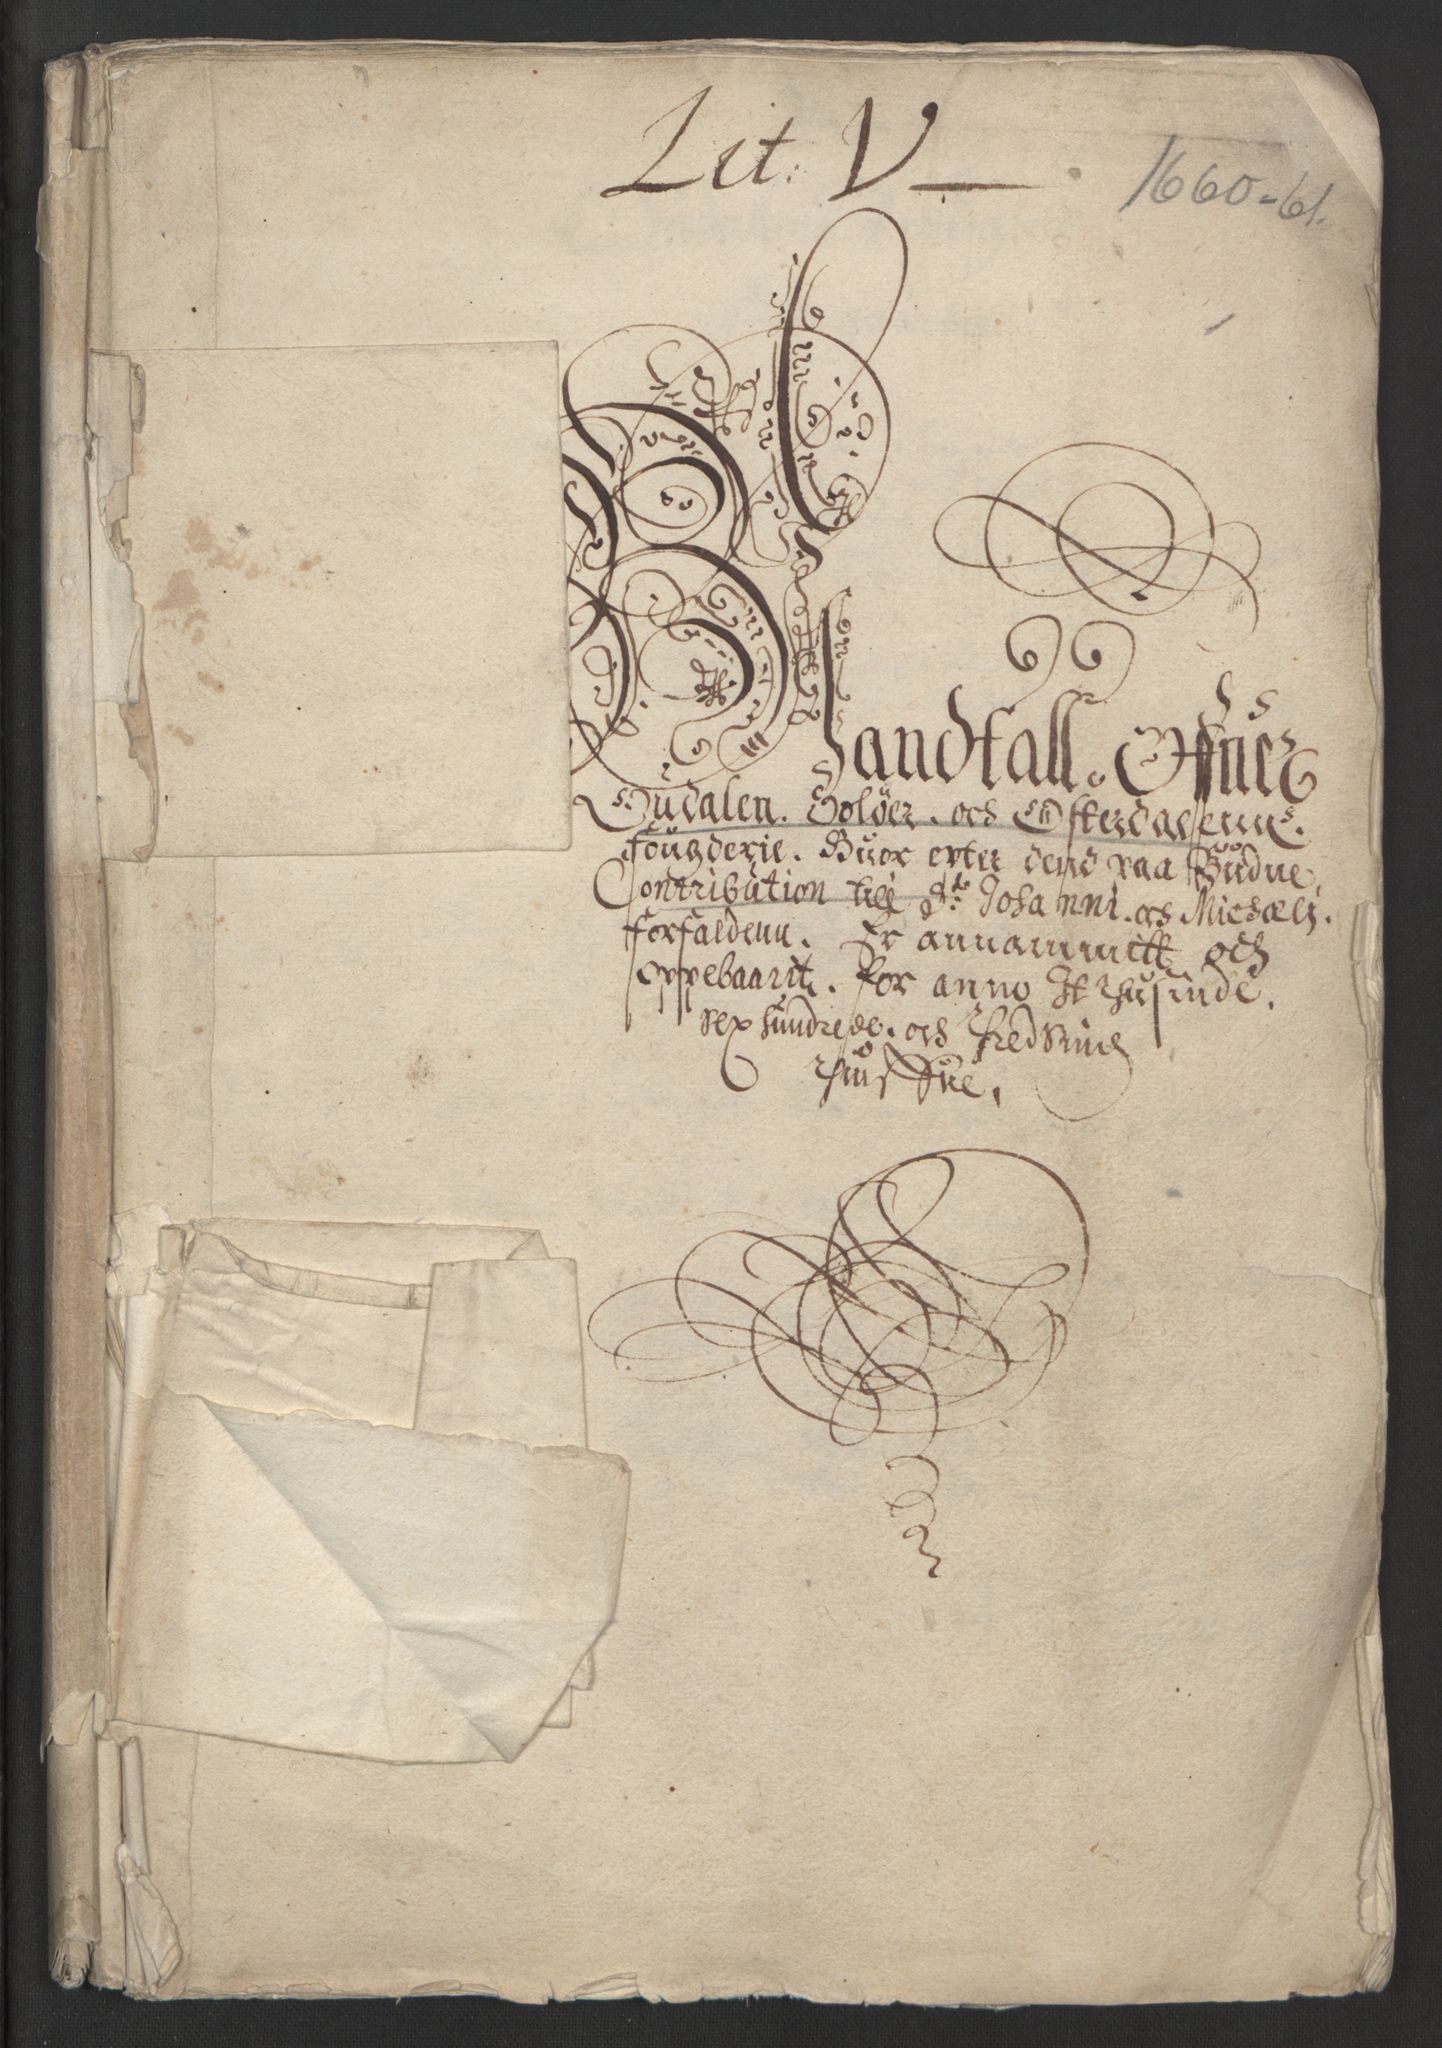 Lit: V
1660-61.
Mandtall. Offuer
Gudalen. Soløer. och Østerdalenns.
Fougderie. Huor efter dend paa Budne,
Contribution till St: Johanni. och Michaelj.
forfaldenn. Er annammitt och
oppebaarit. for anno It thusinde.
sex hundrede. och tredsinds
thiuffue.